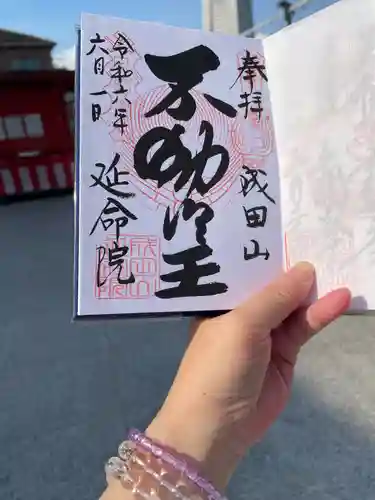 奉拝
成田山
不動明王
令和六年
六月一日
延命院